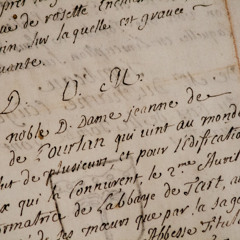 ue de roselle
in, sur laquelle est gravee
vante.
D. O. M.
noble D. Dame jeanne de
de Pourlan qui vint au monde
de plusieurs et pour l'edification
qui la connurent le 2.me Avril
ormatrice de Labbaye de Tart,
des mœurs que par la sage
Abbesse